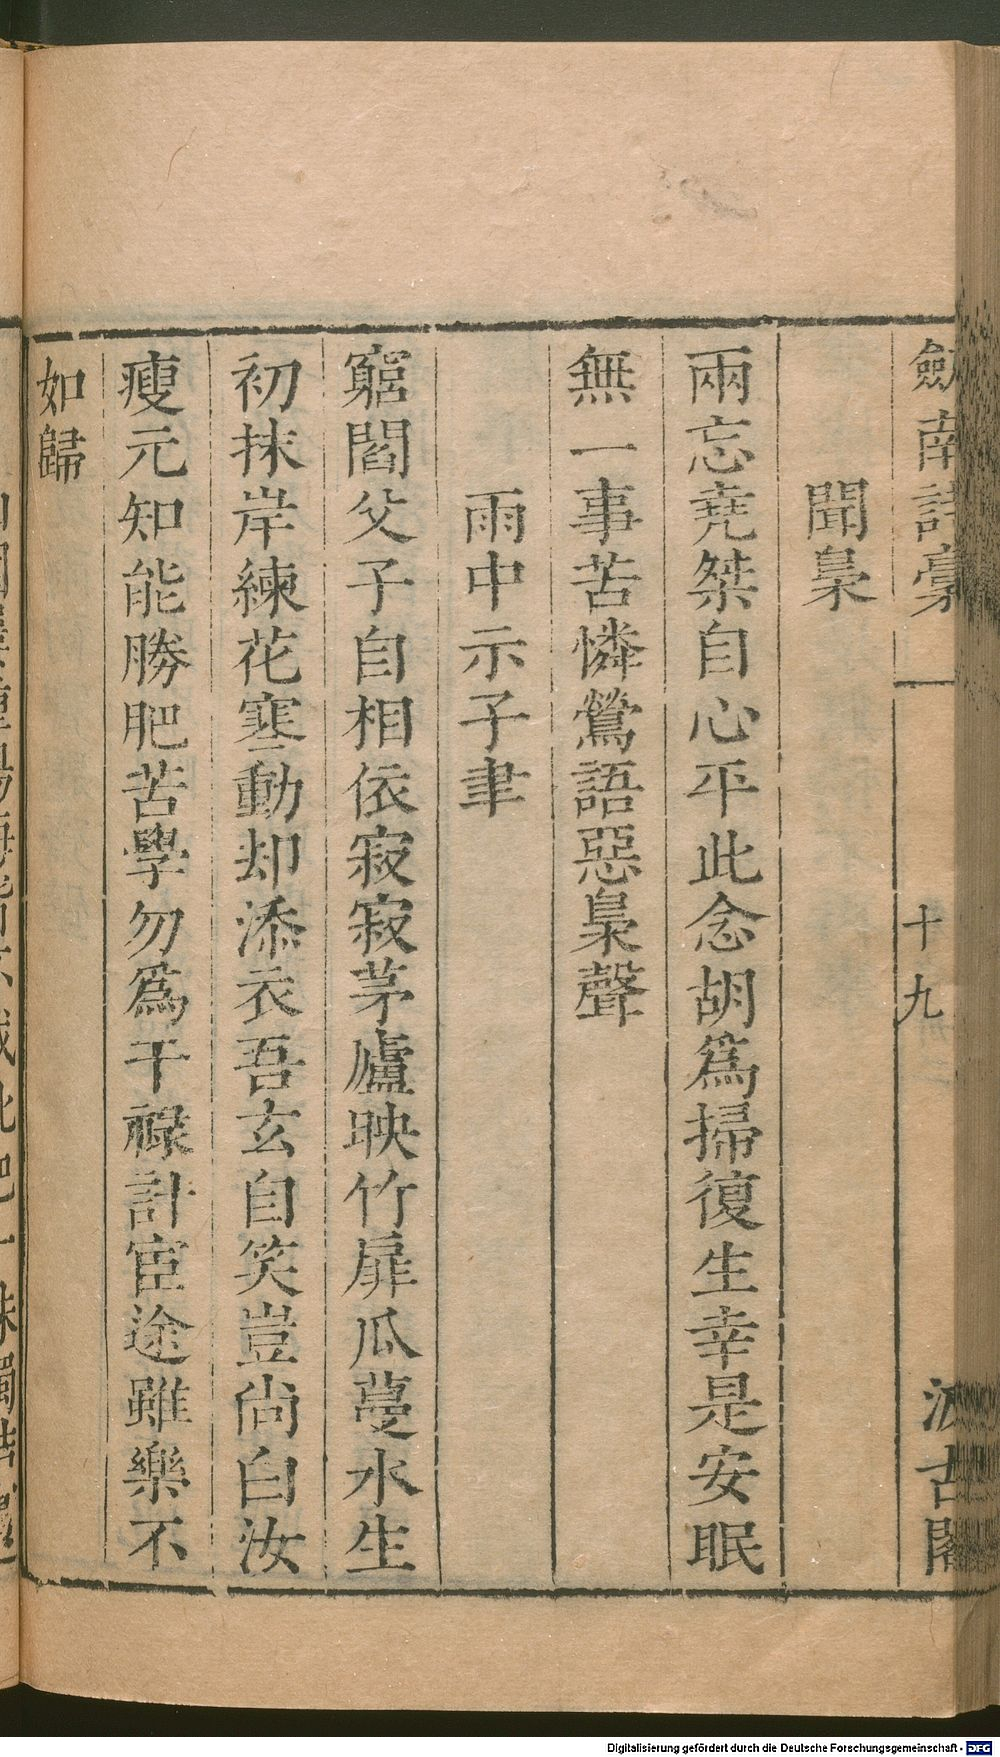 劒南詩藁
十九
汲古閣
聞梟
兩忘堯桀自心平此念胡爲掃復生幸是安眠
無一事苦憐鶯語惡梟聲
雨中示子聿
窮閻父子自相依寂寂茅廬映竹扉瓜蔓水生
初抹岸練花寒動却添衣吾玄自笑豈尚白汝
瘦元知能勝肥苦學勿爲干祿計宦途雖樂不
如歸
Digitalisierung gefördert durch die Deutsche Forschungsgemeinschaft - DFG